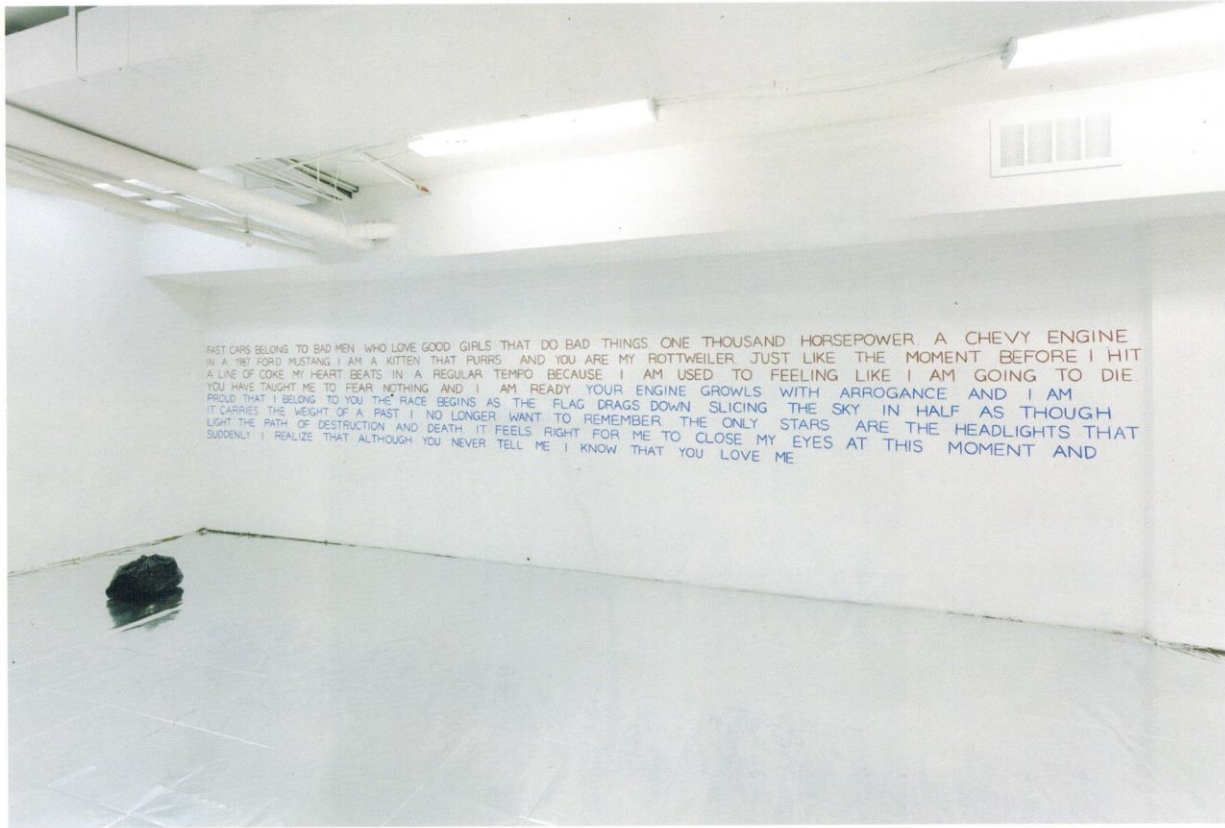 FAST CARS BELONG TO BAD MEN WHO LOVE GOOD GIRLS THAT DO BAD THINGS. ONE THOUSAND HORSEPOWER. A CHEVY ENGINE
IN A 1987 FORD MUSTANG. I AM A KITTEN THAT PURRS AND YOU ARE MY ROTTWEILER. JUST LIKE THE MOMENT BEFORE I HIT
A LINE OF COKE MY HEART BEATS IN A REGULAR TEMPO BECAUSE I AM USED TO FEELING LIKE I AM GOING TO DIE.
YOU HAVE TAUGHT ME TO FEAR NOTHING AND I AM READY. YOUR ENGINE GROWLS WITH ARROGANCE AND I AM
PROUD THAT I BELONG TO YOU. THE RACE BEGINS AS THE FLAG DRAGS DOWN SLICING THE SKY IN HALF AS THOUGH
IT CARRIES THE WEIGHT OF A PAST I NO LONGER WANT TO REMEMBER. THE ONLY STARS ARE THE HEADLIGHTS THAT
LIGHT THE PATH OF DESTRUCTION AND DEATH. IT FEELS RIGHT FOR ME TO CLOSE MY EYES AT THIS MOMENT AND
SUDDENLY I REALIZE THAT ALTHOUGH YOU NEVER TELL ME I KNOW THAT YOU LOVE ME.